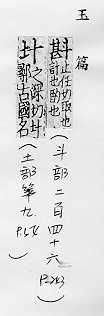 玉篇
止任切取也
計也酌也
(斗部二百四十六 P.283)
之深切
鄩古國名
(土部第九)